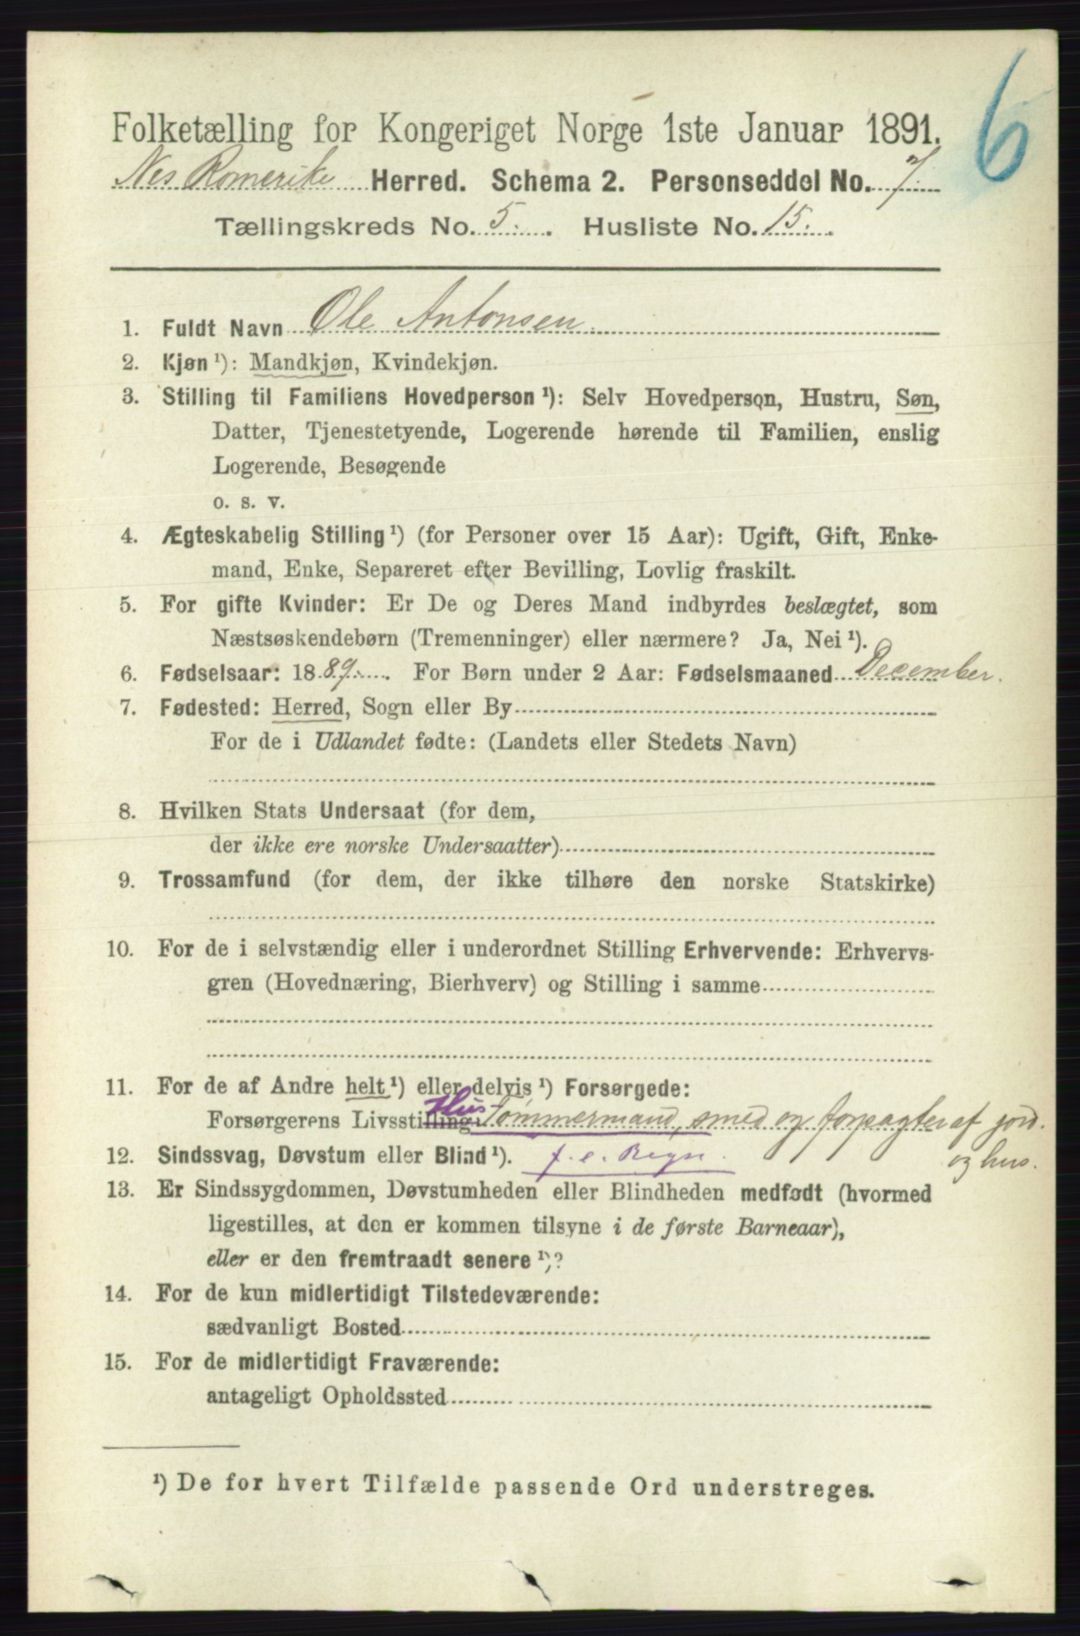 6
Folketælling for Kongeriget Norge 1ste Januar 1891.
Nes Romerike Herred. Schema 2. Personseddel No. 7
Tællingskreds No. 5. Husliste No. 15.
1. Fuldt Navn Ole Antonsen
2. Kjøn ¹): Mandkjøn, Kvindekjøn.
3. Stilling til Familiens Hovedperson ¹): Selv Hovedperson, Hustru, Søn,
Datter, Tjenestetyende, Logerende hørende til Familien, enslig
Logerende, Besøgende
o. s. v.
4. Ægteskabelig Stilling ¹) (for Personer over 15 Aar): Ugift, Gift, Enke-
mand, Enke, Separeret efter Bevilling, Lovlig fraskilt.
5. For gifte Kvinder: Er De og Deres Mand indbyrdes beslægtet, som
Næstsøskendebørn (Tremenninger) eller nærmere? Ja, Nei ¹).
6. Fødselsaar: 1889. For Børn under 2 Aar: Fødselsmaaned December.
7. Fødested: Herred, Sogn eller By
For de i Udlandet fødte: (Landets eller Stedets Navn)
8. Hvilken Stats Undersaat (for dem,
der ikke ere norske Undersaatter)
9. Trossamfund (for dem, der ikke tilhøre den norske Statskirke)
10. For de i selvstændig eller i underordnet Stilling Erhvervende: Erhvervs-
gren (Hovednæring, Bierhverv) og Stilling i samme
11. For de af Andre helt ¹) eller delvis ¹) Forsørgede:
Forsørgerens Livsstilling: Hus Tømmermand, smed og forpagter af jord.
og hus.
12. Sindssvag, Døvstum eller Blind ¹). f. e. Regn.
13. Er Sindssygdommen, Døvstumheden eller Blindheden medfødt (hvormed
ligestilles, at den er kommen tilsyne i de første Barneaar),
eller er den fremtraadt senere ¹)?
14. For de kun midlertidigt Tilstedeværende:
sædvanligt Bosted
15. For de midlertidigt Fraværende:
antageligt Opholdssted
¹) De for hvert Tilfælde passende Ord understreges.